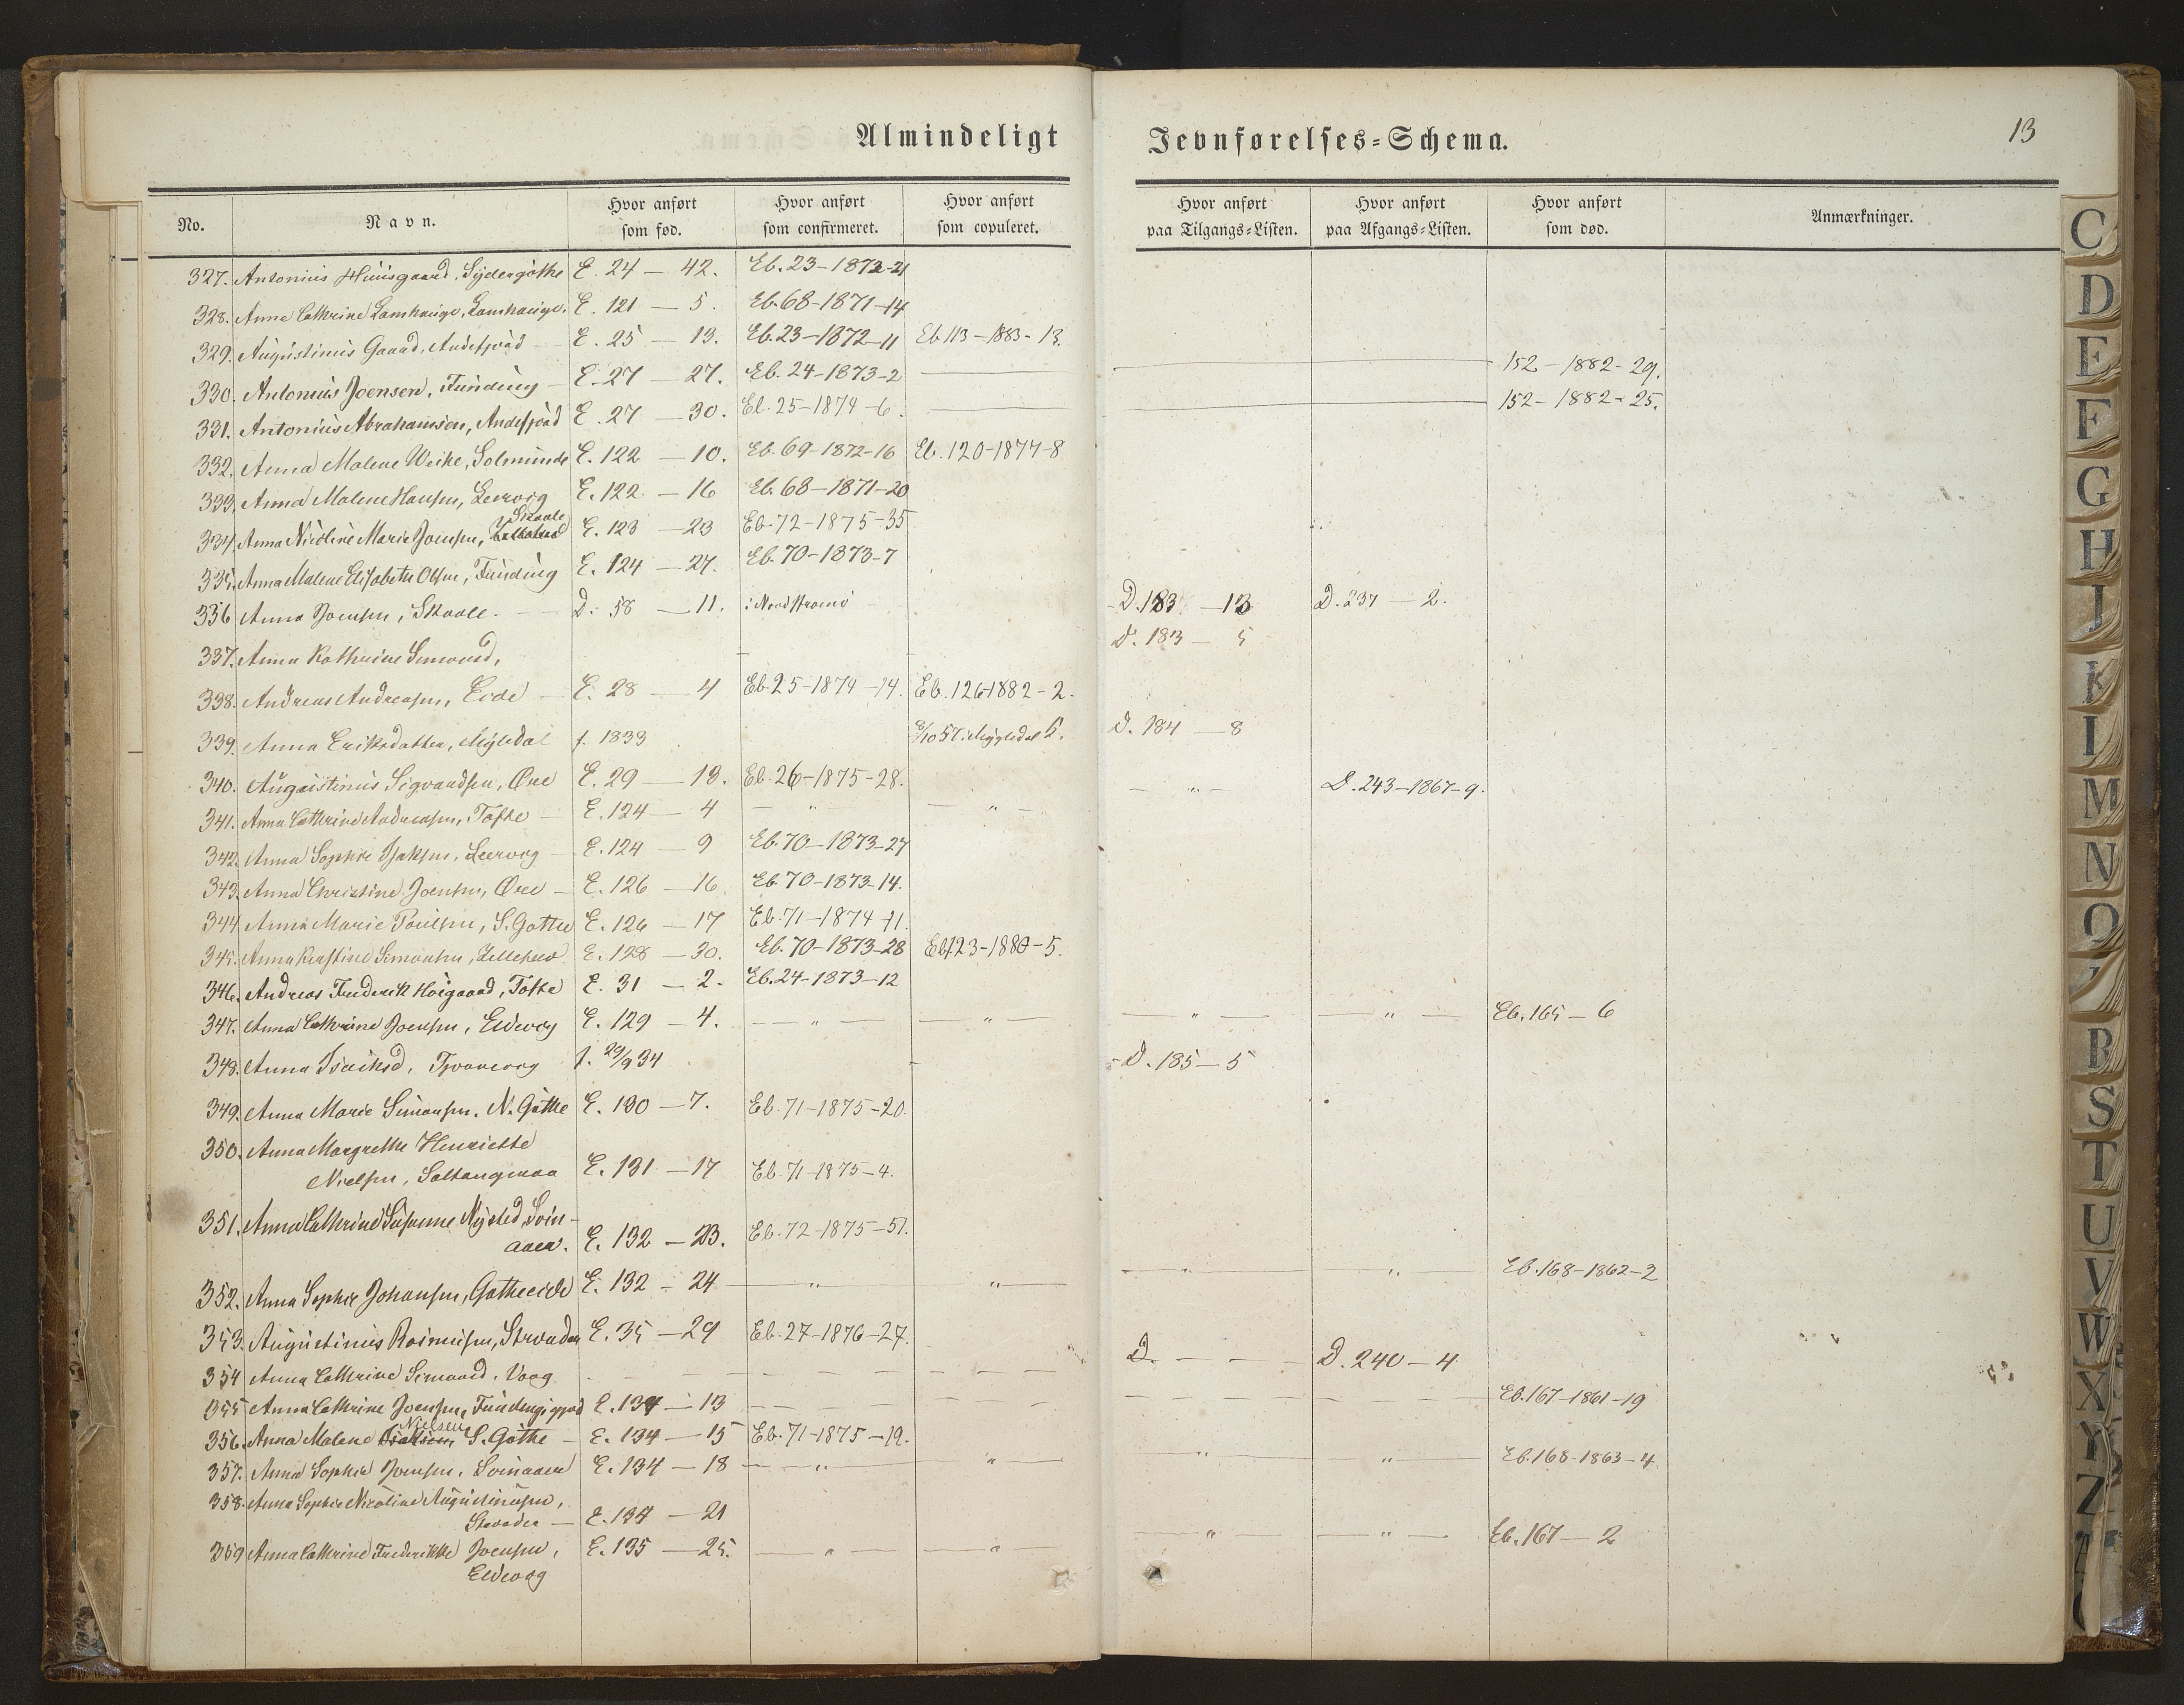 Almindeligt Jevnførelses-Schema. 13
No. Navn. Hvor anført som fød. Hvor anført som confirmeret. Hvor anført som copuleret. Hvor anført paa Tilgangs-Listen. Hvor anført paa Afgangs-Listen. Hvor anført som død. Anmærkninger.
327. Antonius Huusgaard, Sydergöthe E. 24 — 42. Eb. 23-1872-21
328. Anne Cathrine Lamhauge, Lamhauge. E. 121 — 5. Eb. 68-1871-14
329. Augustinus Gaard, Andefjord E. 25 — 13. Eb. 23-1872-11 Eb 113-1883-13.
330. Antonius Joensen, Funding — E. 27 — 27. Eb. 24-1873-2 — 152-1882-29.
331. Antonius Abrahamsen, Andefjord E. 27 — 30. Eb. 25-1874-6. — 152-1882-25.
332. Anna Malene Weihe, Solmunde E. 122 — 10. Eb. 69-1872-16 Eb. 120-1877-8
333. Anna Malene Hansen, Leervig E. 122 — 16 Eb. 68-1871-20
334. Anna Nicoline Marie Joensen, Skaale E. 123 — 23 Eb. 72-1875-35
335. Anna Malene Elisabeth Olsen, Funding E. 124 — 27. Eb. 70-1873-7
336 Anna Joensen, Skaale. — D. 58 — 11. i Nordstrømø D. 183 — 13 D. 237 — 2.
337. Anna Kathrine Simonsd, D. 183 — 5
338. Andreas Andreasen, Eide — E. 28 — 4 Eb. 25-1874-14. Eb. 126-1882-2.
339. Anna Eriksdatter, Mygledal f. 1833 8/10 57 i Mygledal D. 184 — 8
340. Augustinus Sigvardsen, Øre E. 29 — 13. Eb. 26-1875-28.
341. Anna Cathrine Andreasen, Tofte — E. 124 — 4 — " — — " — — " — D. 243-1867-9.
342. Anna Sophie Isaksen, Leervig — E. 124 — 9 Eb. 70-1873-27
343. Anna Christine Joensen, Øre — E. 126 — 16 Eb. 70-1873-14.
344. Anna Marie Poulsen, S. Gøthe E. 126 — 17 Eb. 71-1874-11.
345. Anna Kirstine Simonsen, E. 128 — 30. Eb. 70-1873-28 Eb. 123-1880-5.
346. Andreas Frederik Høigaard, Tofte E. 31 — 2. Eb. 24-1873-12
347. Anna Cathrine Joensen, Eldevig E. 129 — 4. — " — — " — — " — — " — Eb. 165 — 6
348. Anna Isaksd, f. 29/9 34 D. 185 — 5
349. Anna Marie Simonsen, N. Gøthe E. 130 — 7. Eb. 71-1875-20.
350. Anna Margrethe Henriette
Nielsen, Saltangeraa E. 131 — 17 Eb. 71-1875-4.
351. Anna Cathrine Susanne Nysted, Svin-
aaer. E. 132 — 23. Eb. 72-1875-51.
352. Anna Sophie Johansen, Gøtheeide E. 132 — 24 — " — — " — — " — — " — Eb. 168-1862-2
353. Augustinus Rasmussen, Strender E. 35 — 29 Eb. 27-1876-27.
354 Anna Cathrine Simonsd. Vaag — — — D. — — — D. 240 — 4
355 Anna Cathrine Joensen, Fundingsfjord E. 134 — 13 — — — Eb. 167-1861-19
356. Anna Malene Nielsen, S. Gøthe — E. 134 — 15 Eb. 71-1875-19.
357. Anna Sophie Joensen, Svinaaer E. 134 — 18 — " — — " — — " — — " — Eb. 168-1863-4
358. Anna Sophie Nicoline Augustinusen,
Strender — E. 134 — 21
359 Anna Cathrine Frederikke Joensen, E. 135 — 25. — " — — " — — " — — " — Eb. 167 — 2
Eldevig
C
D
E
F
G
H
J
K
L
M
N
O
R
S
T
U
V
W
X
Y
Z